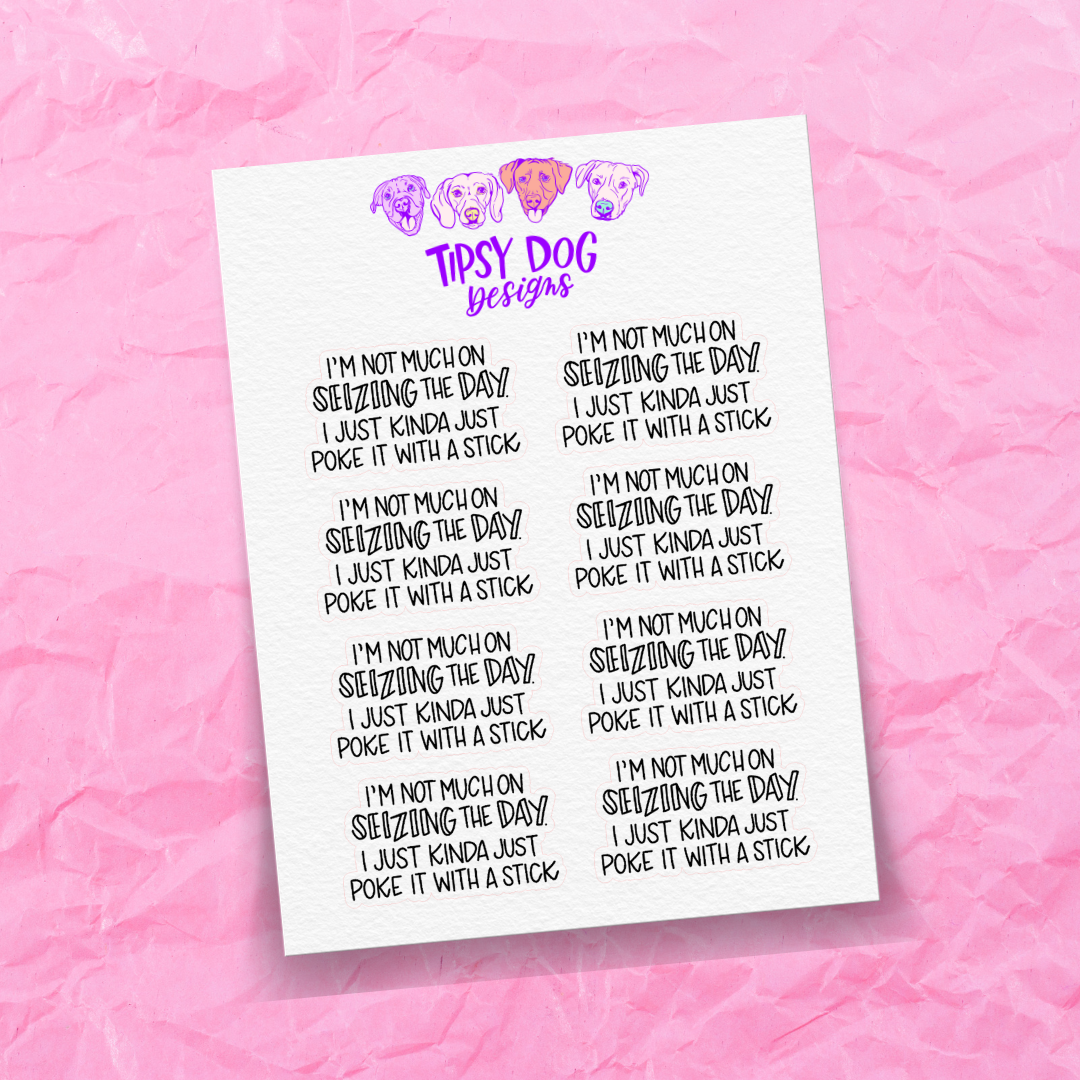 TIPSY DOG
Designs
I'M NOT MUCH ON
SEIZING THE DAY.
I JUST KINDA JUST
POKE IT WITH A STICK
I'M NOT MUCH ON
SEIZING THE DAY.
I JUST KINDA JUST
POKE IT WITH A STICK
I'M NOT MUCH ON
SEIZING THE DAY.
I JUST KINDA JUST
POKE IT WITH A STICK
I'M NOT MUCH ON
SEIZING THE DAY.
I JUST KINDA JUST
POKE IT WITH A STICK
I'M NOT MUCH ON
SEIZING THE DAY.
I JUST KINDA JUST
POKE IT WITH A STICK
I'M NOT MUCH ON
SEIZING THE DAY.
I JUST KINDA JUST
POKE IT WITH A STICK
I'M NOT MUCH ON
SEIZING THE DAY.
I JUST KINDA JUST
POKE IT WITH A STICK
I'M NOT MUCH ON
SEIZING THE DAY.
I JUST KINDA JUST
POKE IT WITH A STICK